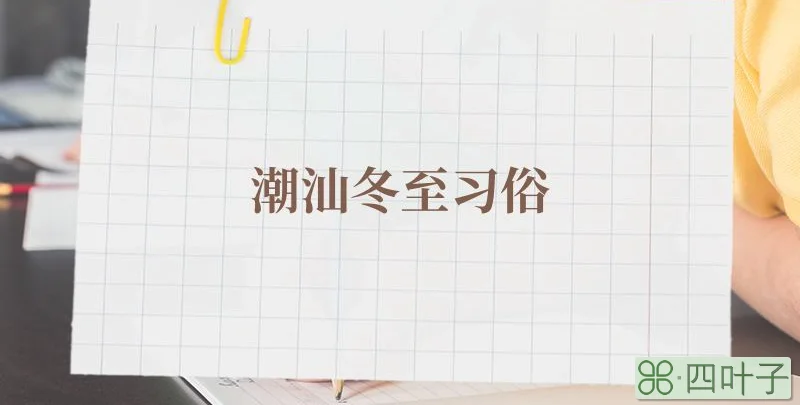 潮汕冬至习俗
四叶子